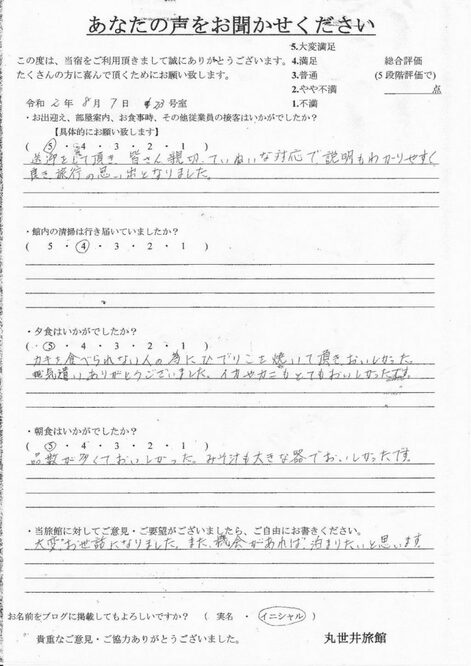 あなたの声をお聞かせください
5.大変満足
この度は、当宿をご利用頂きまして誠にありがとうございます。 4.満足 総合評価
たくさんの方に喜んで頂くためにお願い致します。 3.普通 (5段階評価で)
2.やや不満 点
令和 2年 8月 7日 号室 1.不満
・お出迎え、部屋案内、お食事時、その他従業員の接客はいかがでしたか?
【具体的にお願い致します】
( 5 ・ 4 ・ 3 ・ 2 ・ 1 )
送迎をして頂き 皆さん親切、ていねいな対応で説明もわかりやすく
良き旅行の思い出となりました。
・館内の清掃は行き届いていましたか?
( 5 ・ 4 ・ 3 ・ 2 ・ 1 )
・夕食はいかがでしたか?
( 5 ・ 4 ・ 3 ・ 2 ・ 1 )
カキを食べられない人の為にひでりこを焼いて頂きおいしかった。
お気遣いありがとうございました。イカやカニもとてもおいしかったです。
・朝食はいかがでしたか?
( 5 ・ 4 ・ 3 ・ 2 ・ 1 )
品数が多くておいしかった。みそ汁も大きな器でおいしかったです。
・当旅館に対してご意見・ご要望がございましたら、ご自由にお書きください。
大変お世話になりました。また、機会があれば泊まりたいと思います。
お名前をブログに掲載してもよろしいですか? ( 実名 ・ イニシャル )
貴重なご意見・ご協力ありがとうございました。 丸世井旅館